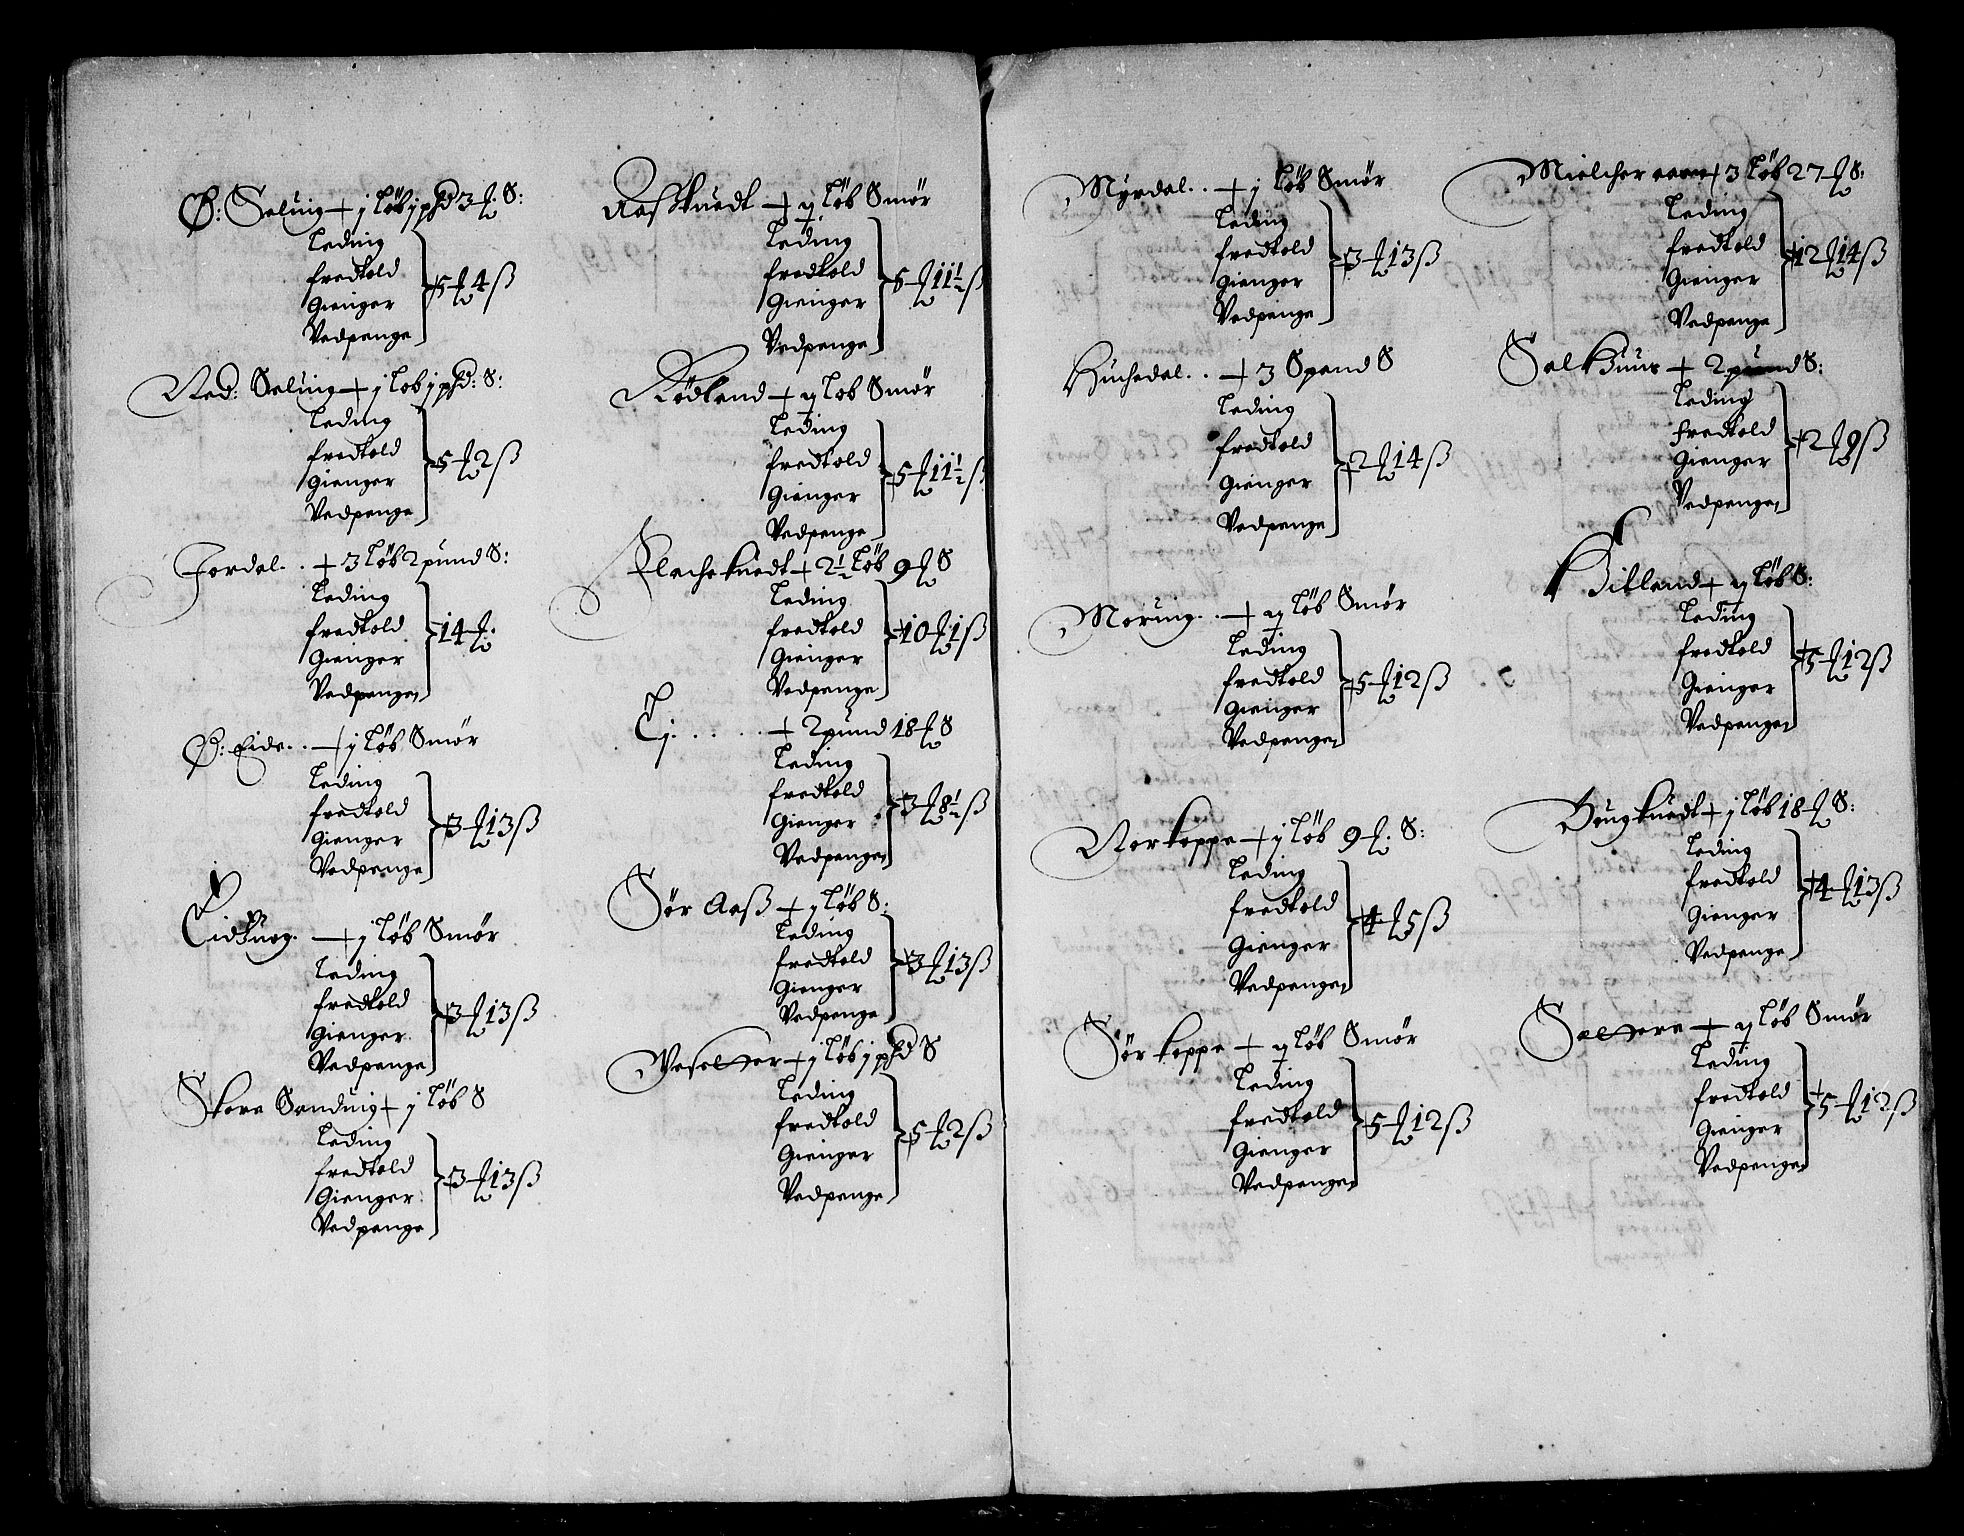 Ø: Saluig + j löb j pd 3 ℔ S:
Leding
fredtold
Gienger
Vedpenge
5 ℔ 4 ß
Ned: Saluig + j lob j pd: S:
Leding
fredtold
Gienger
Vedpenge
5 ℔ 2 ß
Fordal . . + 3 löb 2 pund S:
Leding
fredtold
Gienger
Vedpenge
14 ℔.
Ø: Eide . . + j löb Smör
Leding
fredtold
Gienger
Vedpenge
3 ℔ 13 ß
Eidsuog. + j löb Smör
Leding
fredtold
Gienger
Vedpenge
3 ℔ 13 ß
Skore Sanduig + j löb S
Leding
fredtold
Gienger
Vedpenge
3 ℔ 13 ß
Aaskuedt + ij löb Smör
Leding
fredtold
Gienger
Vedpenge
5 ℔ 11½ ß
Rödland + ij lob Smör
Leding
fredtold
Gienger
Vedpenge
5 ℔ 11½ ß
Flachekuedt + 2½ löb 9 ℔ S
Leding
fredtold
Gienger
Vedpenge
10 ℔ 1 ß
Ej . . . . . + 2 pund 18 ℔ S
Leding
fredtold
Gienger
Vedpenge
3 ℔ 8½ ß
Sör Aaß + j löb S:
Leding
fredtold
Gienger
Vedpenge
3 ℔ 13 ß
Vesetter + j löb j pd S
Leding
fredtold
Gienger
Vedpenge
5 ℔ 2 ß
Myrdal . . + j löb Smör
Leding
fredtold
Gienger
Vedpenge
3 ℔ 13 ß
Huchedal . . + 3 Spand S
Leding
fredtold
Gienger
Vedpenge
2 ℔ 14 ß
Moruig . . + ij löb Smör
Leding
fredtold
Gienger
Vedpenge
5 ℔ 12 ß
Norteppe + j löb 9 ℔. S:
Leding
fredtold
Gienger
Vedpenge
4 ℔ 5 ß
Sör teppe + ij löb Smör
Leding
fredtold
Gienger
Vedpenge
5 ℔ 12 ß
Mielcher aaen + 3 löb 27 ℔ S:
Leding
fredtold
Gienger
Vedpenge
12 ℔ 14 ß
Salthuus + 2 pund S:
Leding
fredtold
Gienger
Vedpenge
2 ℔ 9 ß
Birkeland + ij löb S:
Leding
fredtold
Gienger
Vedpenge
5 ℔ 12 ß
Haugkuedt + j löb 18 ℔ S:
Leding
fredtold
Gienger
Vedpenge
4 ℔ 13 ß
Salterø + ij löb Smör
Leding
fredtold
Gienger
Vedpenge
5 ℔ 12 ß